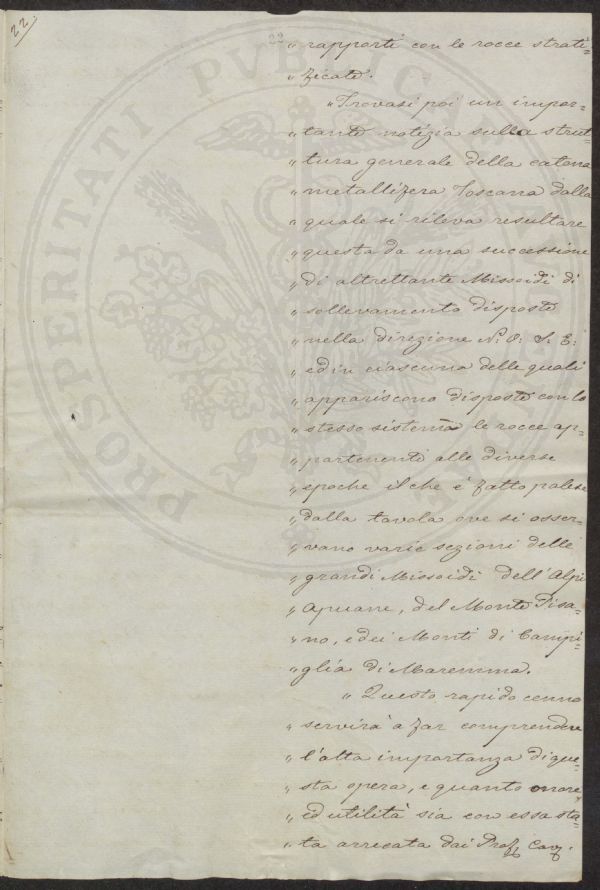 22.
22
" rapporti con le rocce strati=
" ficate.
" Trovasi poi un impor=
" tante notizia sulla strut=
" tura generale della catena
" metallifera Toscana dalla
" quale si rileva resultare
" questa da una successione
" di altrettante Elissoidi di
" sollevamento disposte
" nella direzione N: O: S: E:
" ed in ciascuna delle quali
" appariscono disposte con lo
" stesso sistema le rocce ap=
" partenenti alle diverse
" epoche il che è fatto palese
" dalla tavola ove si osser=
" vano varie sezioni delle
" grandi Elissoidi dell'Alpi
" Apuane, del Monte Pisa=
" no, e dei Monti di Campi=
" glia di Maremma.
" Questo rapido cenno
" servirà a far comprendere
" l'alta importanza di que=
" sta opera, e quanto onore
" ed utilità sia con essa sta=
" ta arrecata dai Prof. Cav.
PROSPERITATI PVBLICAE